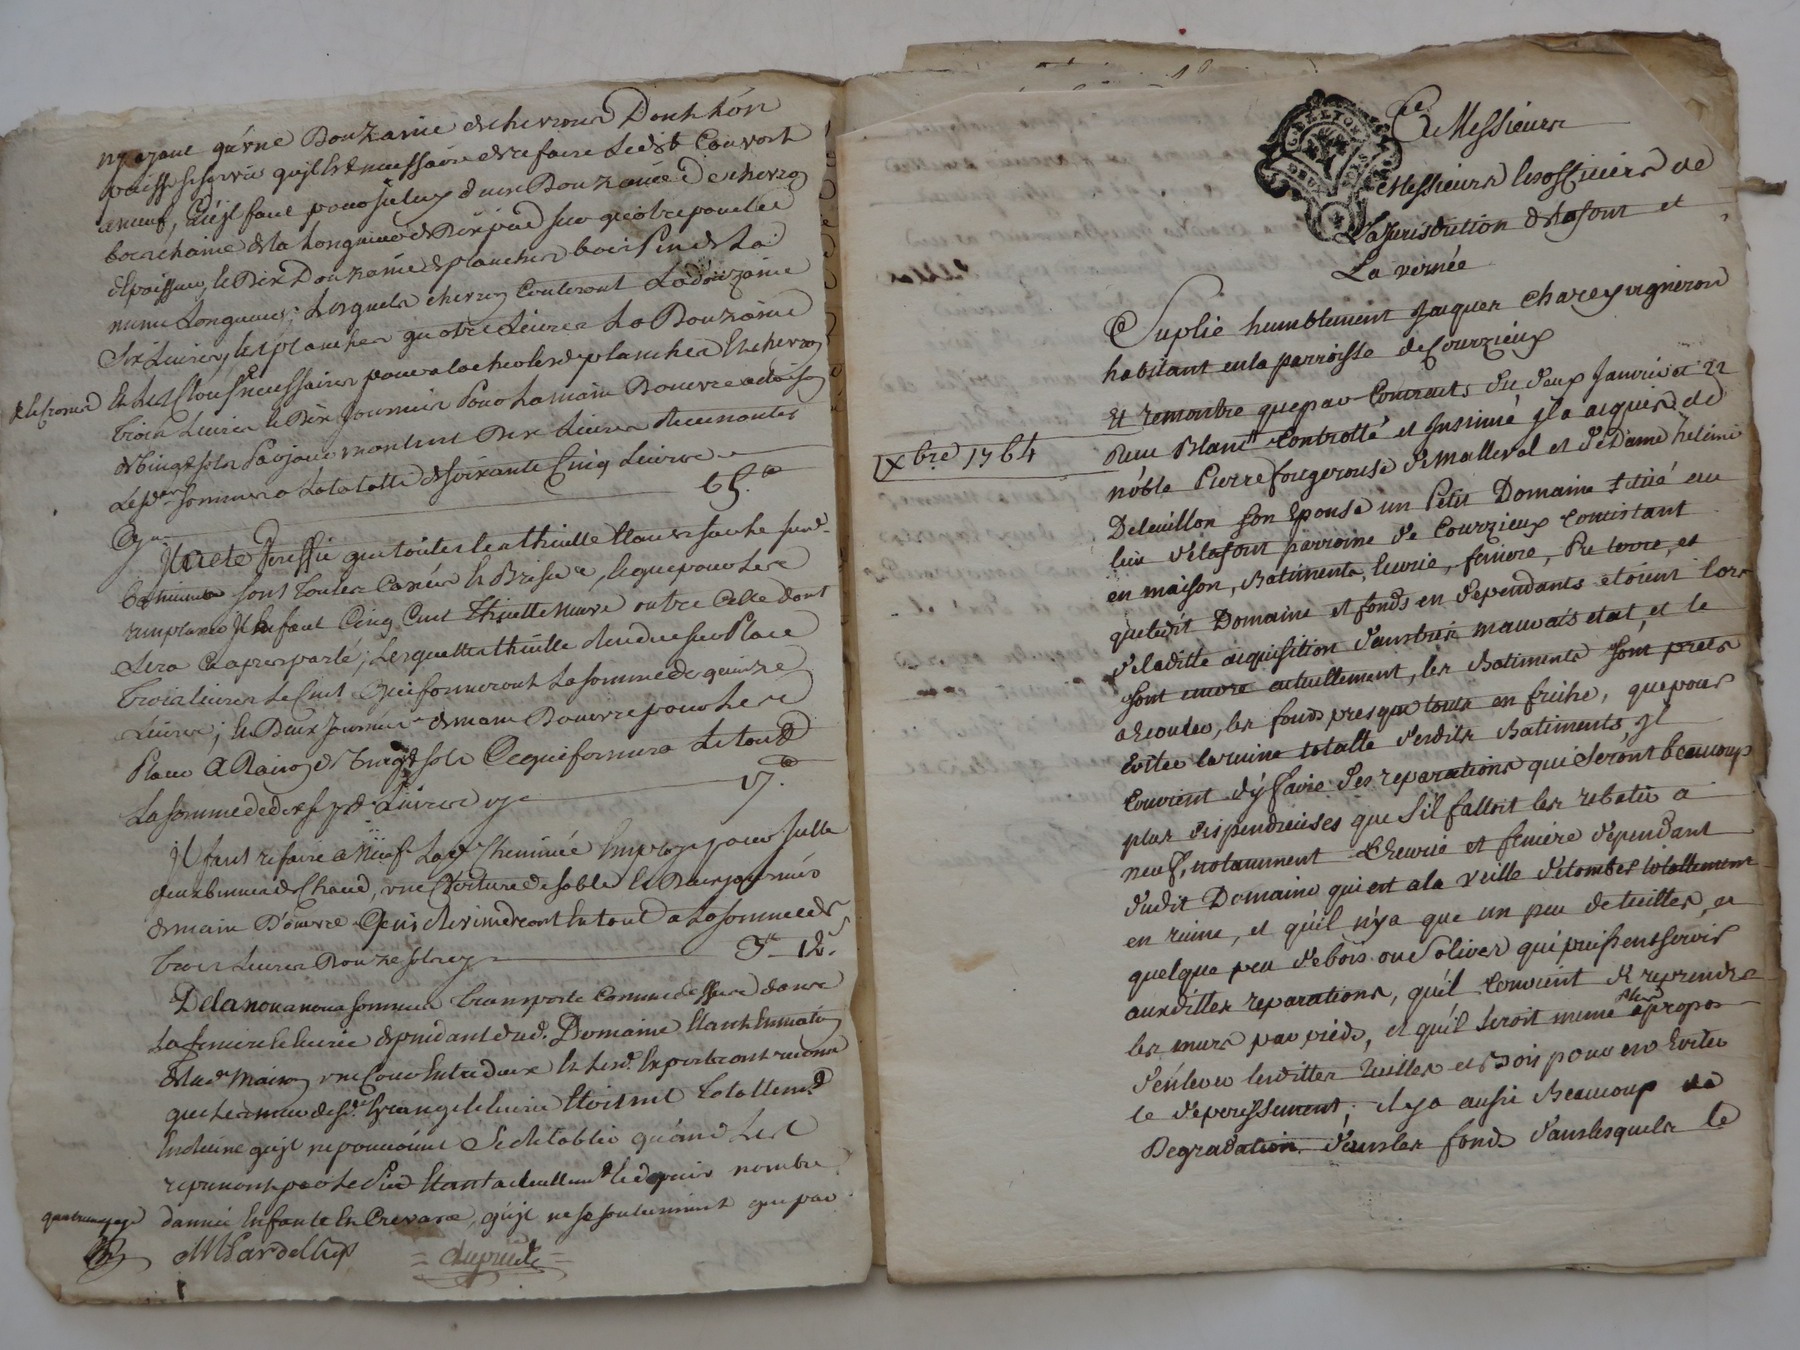 ny ayant qu'une Douzaine de chevrons Dont l'on
puisse se servir qu'il est necessaire de refaire ledit Couvert
a neuf, qu'il faut pour iceluy d'une Douzaine de chevron
bois chaine de la longueur de Dix pied sur quatre pouce
d'epaisseur, le Dix Douzaine de plancher bois Pin de La
meme Longueur; Lesquels chevron Couteront La douzaine
Six Livres, les plancher quatre Livres La Douzaine
Et les Clous necessaires pour atacher les de plancher Et chevron
trois Livres le Dix Journées Pour La main Doeuvre a raison
de vingt sols Par jour montent Dix Livres revenantes
Les sommes a la totalle de soixante Cinq Livres
Cy 65.
Il a été verifié que toutes les thuille
sont toutes Cassées Et Brisées, Et que pour les
remplacer Il en faut Cinq Cent Thuille neuve outre Celle dont
sera Cy apres parlé; Lesquelles thuille rendue sur Place
trois livres le Cent Cy qui formeront La somme de quinze
Livres; Et Deux Journée de main Doeuvre pour les
Placer A Raison de Vingt sols Ce qui formera Le tout
La somme de dix sept Livres cy 17.
Il faut refaire a Neuf La Cheminée Employer pour Icelle
deux bennes de Chaud, une Voiture de sable Et Deux journées
de main D'oeuvre Ce qui reviendront En tout a La somme de
trois Livres Douze sols cy 3 12.
De la nous nous sommes transporté Comme dessus dans
La feniere Et Ecurie dependant dud. Domaine Etant En matin
de lad. Maison une Cour Entre deux Et
que Les murs de
En Ruine qu'il ne pouvoient se Retablir qu'and Les
reprenant par le Pied Etant actuellement Et depuis nombre
d'année En fante En Crevasse, qu'il ne se soutiennent que par
quatrieme page
Dupuis
GÉNÉ LYON
DEUX SOLS
A Messieurs
Messieurs les officiers de
La Jurisdiction de Lafont et
La vernée
Suplie humblement Jacques Charey vigneron
habitant en la parroisse de Courzieux
Et remontre que par Contracts du deux Janvier et 22
Xbre 1764
Reçu Blanc Controllé et Insinué Il a acquis de
nôble Pierre fougerouse de malleval et de Dame helène
Deleuillon son Epouse un Petit Domaine situé au
lieu de lafont parroisse de Courzieux consistant
en maison, Batiments, Ecurie, feniere, Pré terre, et
que ledit Domaine et fonds en dependants etoient lors
de laditte acquisition dans un trés mauvais etat, et le
sont encore actuellement, les Batiments sont prets
a Ecrouler, les fonds presque touts en friche, que pour
Eviter la ruine totalle desdits Batiments, Il
Convient d'y faire des reparations qui seront beaucoup
plus dispendieuses que s'il falloit les rebatir a
neuf, notamment Ecurie et feniere dependant
dudit Domaine qui est a la veille de tomber totallement
en ruine, et qu'il n'y a que un peu de tuilles, et
quelque peu de bois ou solives qui puissent servir
auxdittes reparations, qu'il Convient de reprendre
les murs par pieds, et qu'il seroit meme plus apropos
d'enlever lesdittes tuilles et Bois pour en Eviter
le deperissement; il y a aussi Beaucoup de
Degradation dans les fonds dans lesquels le